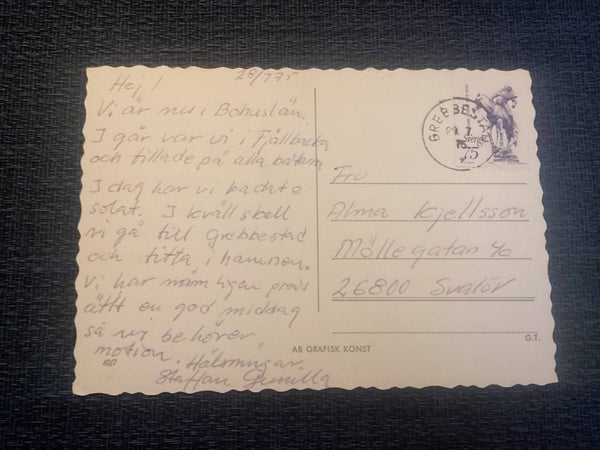 28/7 75
Hej!
Vi är nu i Bohuslän.
I går var vi i Fjällbacka
och tillade på alla båtarna
I dag har vi badat o
solat. I kväll skall
vi gå till Grebbestad
och titta i hamnen.
Vi har nämligen precis
ätit en god middag
så vi behöver
motion. Hälsningar
Staffan Gunilla
407
AB GRAFISK KONST
GREBBESTAD
29 7
75
Sverige
75
Fru
Alma Kjellsson
Möllegatan 4c
26800 Svalöv
G.T.